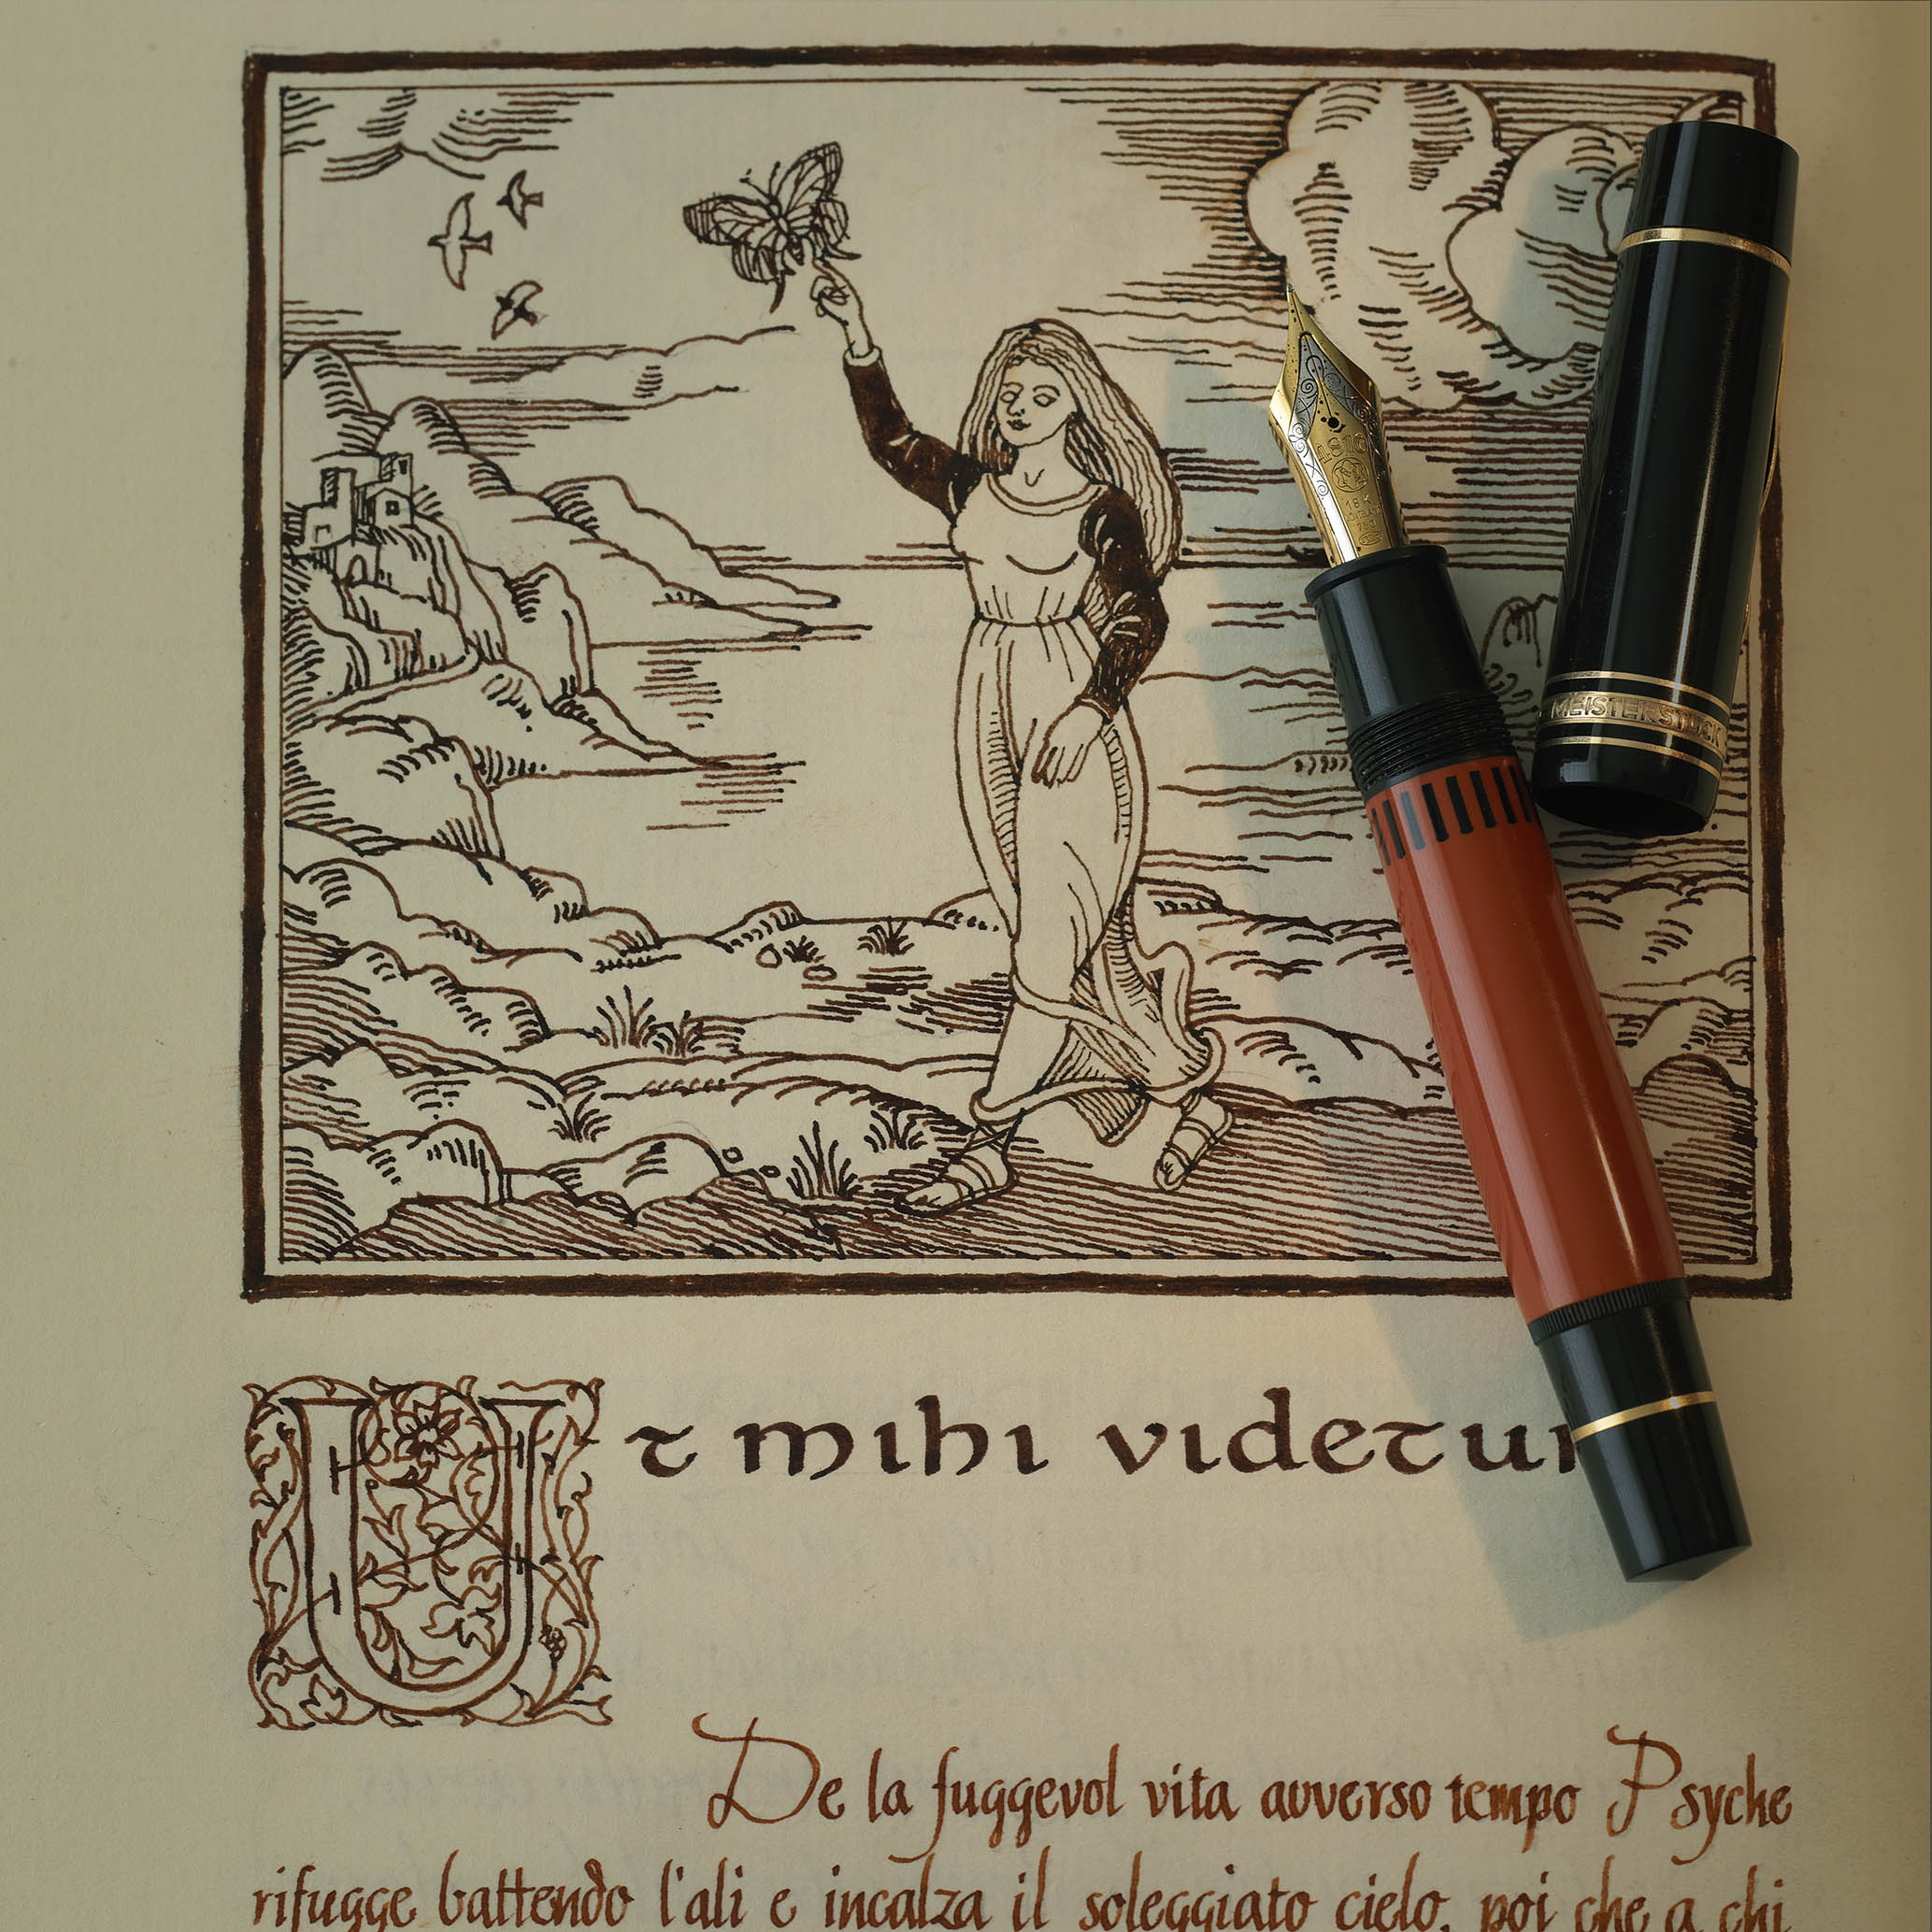 4810
18K
750
MEISTERSTÜCK
Ut mihi videtur
De la fuggevol vita avverso tempo Psyche
rifugge battendo l'ali e incalza il soleggiato cielo, poi che a chi